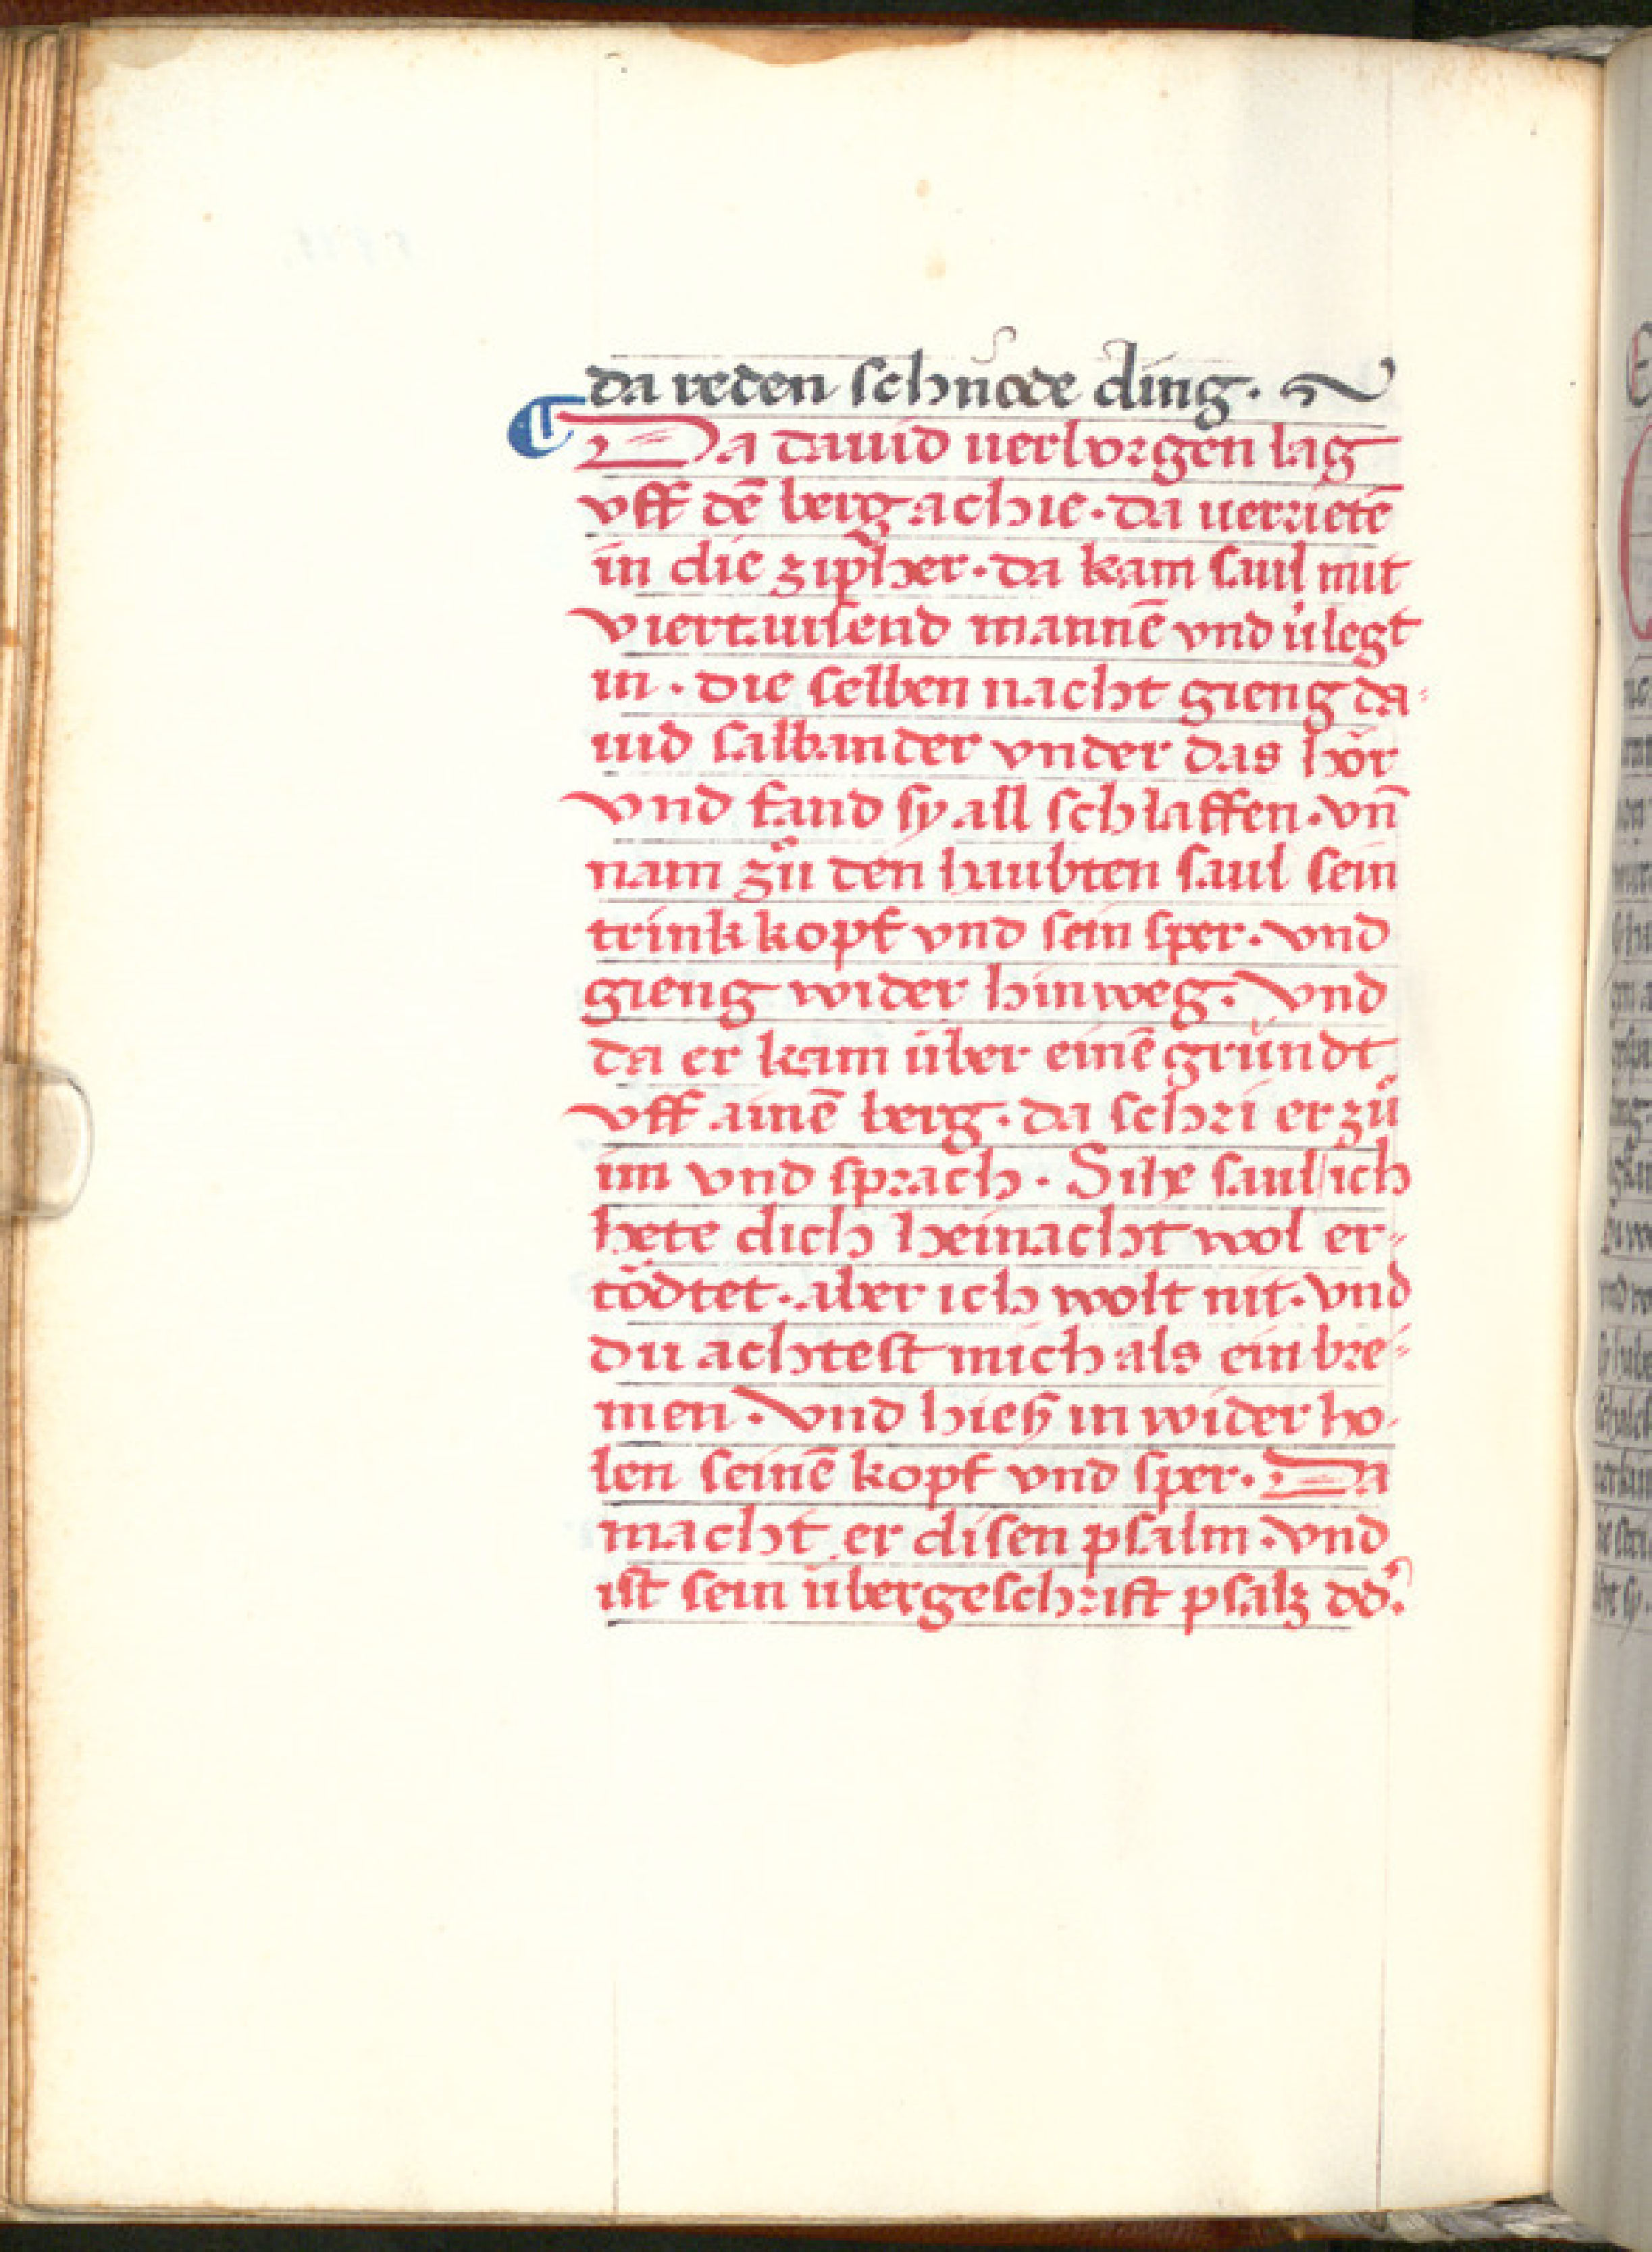 da reden schnöde ding.
Da dauid uerborgen lag
vff dē berg achie · da uerrietē
in die zipher · da kam saul mit
viertausend mannē vnd ůlegt
in · die selben nacht gieng da-
uid salbander vnder das hör
vnd fand sy all schlaffen · vn̄
nam zů den haubten saul sein
trinkkopf vnd sein sper · vnd
gieng wider hinweg. Vnd
da er kam über einē gründt
vff ainē berg · da schri er zů
im vnd sprach · Sihe saul ich
hete dich heinacht wol er-
tödtet · aber ich wolt nit · vnd
du achtest mich als ein bre-
men · Vnd hieß in wider ho-
len seinē kopf vnd sper · Da
macht er disen psalm · vnd
ist sein übergeschrift psalꝫ dd.